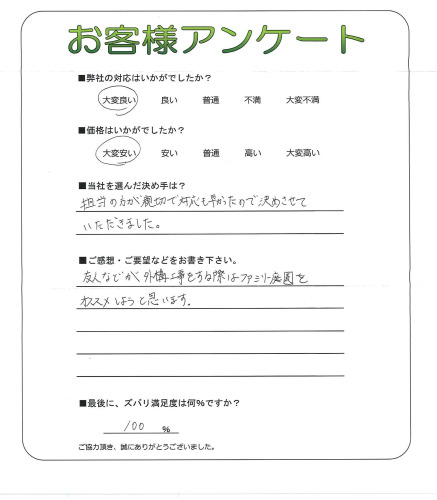 お客様アンケート
■弊社の対応はいかがでしたか？
大変良い 良い 普通 不満 大変不満
■価格はいかがでしたか？
大変安い 安い 普通 高い 大変高い
■当社を選んだ決め手は？
担当の方が親切で対応も早かったので決めさせて
いただきました。
■ご感想・ご要望などをお書き下さい。
友人などが外構工事をする際はファミリー庭園を
オススメしようと思います。
■最後に、ズバリ満足度は何％ですか？
100 ％
ご協力頂き、誠にありがとうございました。